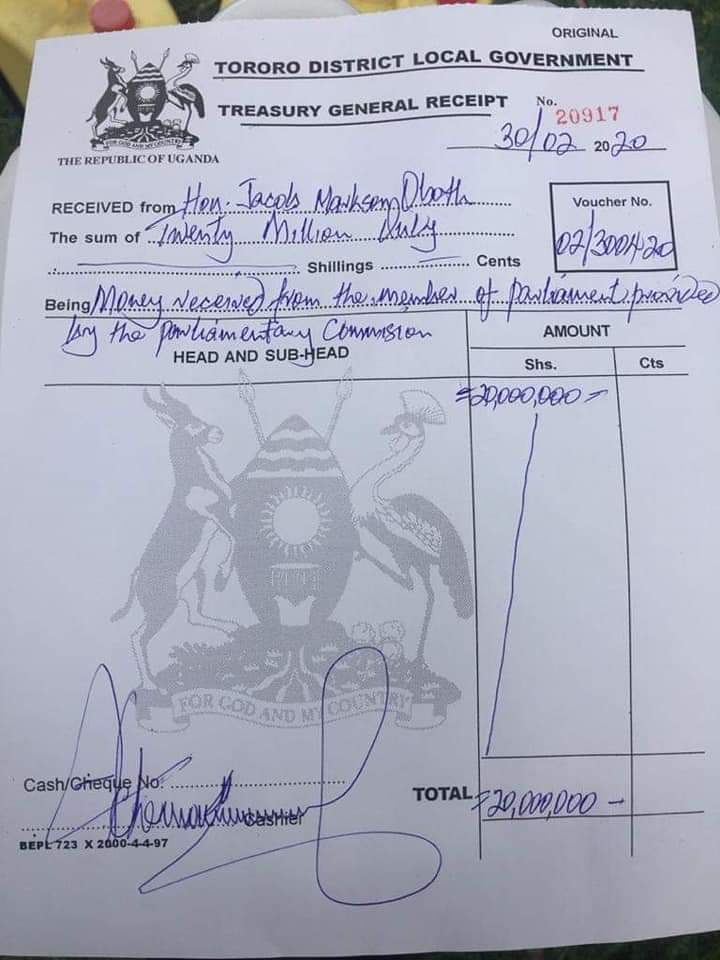 ORIGINAL
TORORO DISTRICT LOCAL GOVERNMENT
TREASURY GENERAL RECEIPT No. 20917
30/02 2020
FOR GOD AND MY COUNTRY
THE REPUBLIC OF UGANDA
RECEIVED from Hon. Jacob Markson Oboth
Voucher No.
The sum of Twenty Million Only
02/300420
Shillings Cents
Being Money received from the member of parliament provided
by the parliamentary Commission
HEAD AND SUB-HEAD AMOUNT
Shs. Cts
=20,000,000 =
FOR GOD AND MY COUNTRY
Cash/Cheque No.
TOTAL =20,000,000 =
Cashier
BEPL 723 X 2000-4-4-97